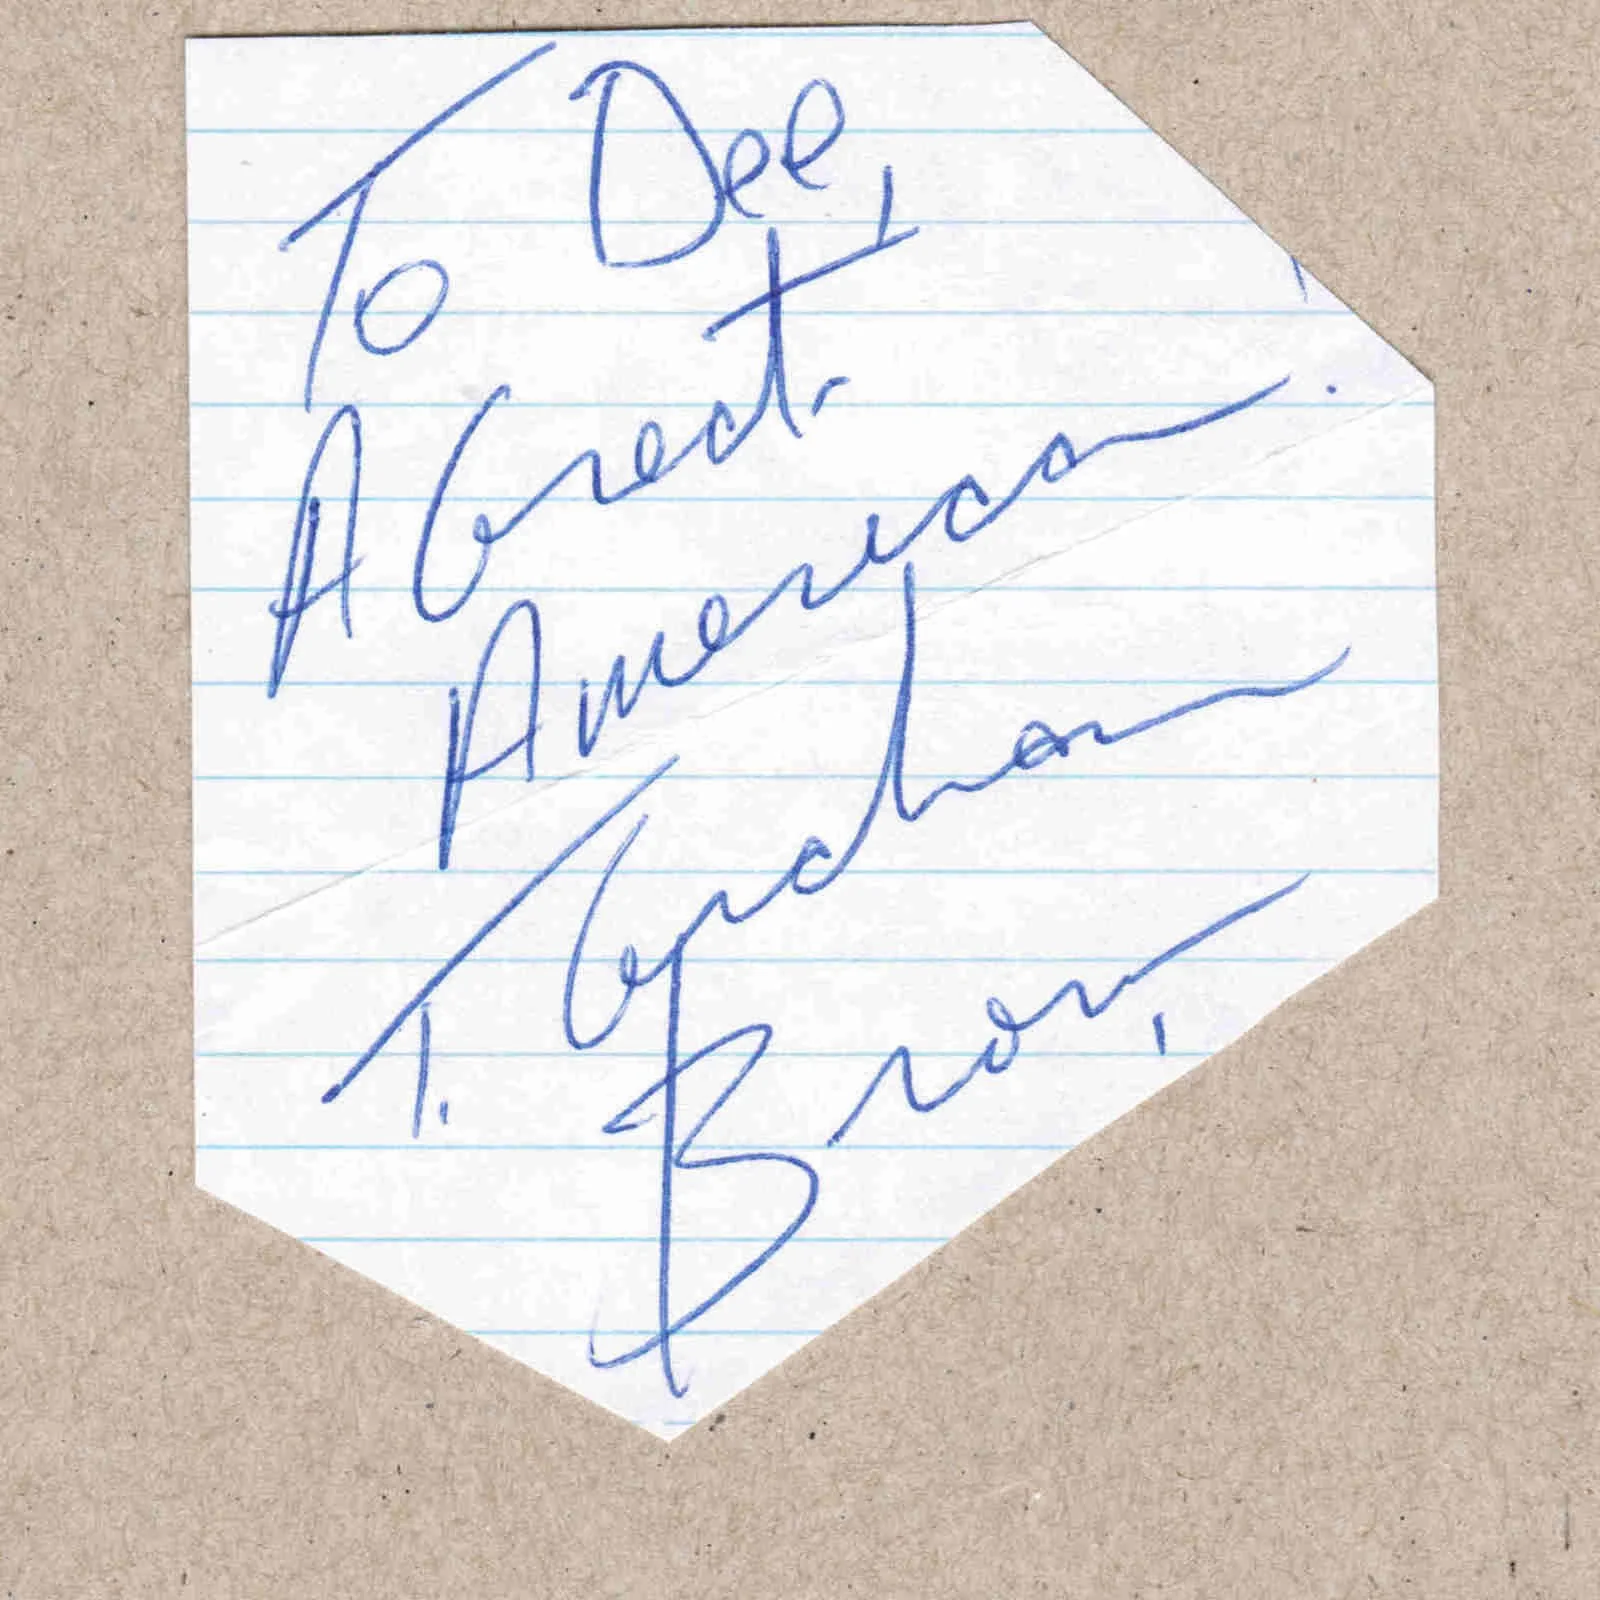 To Dee,
A Great
American!
T. Graham
Brown